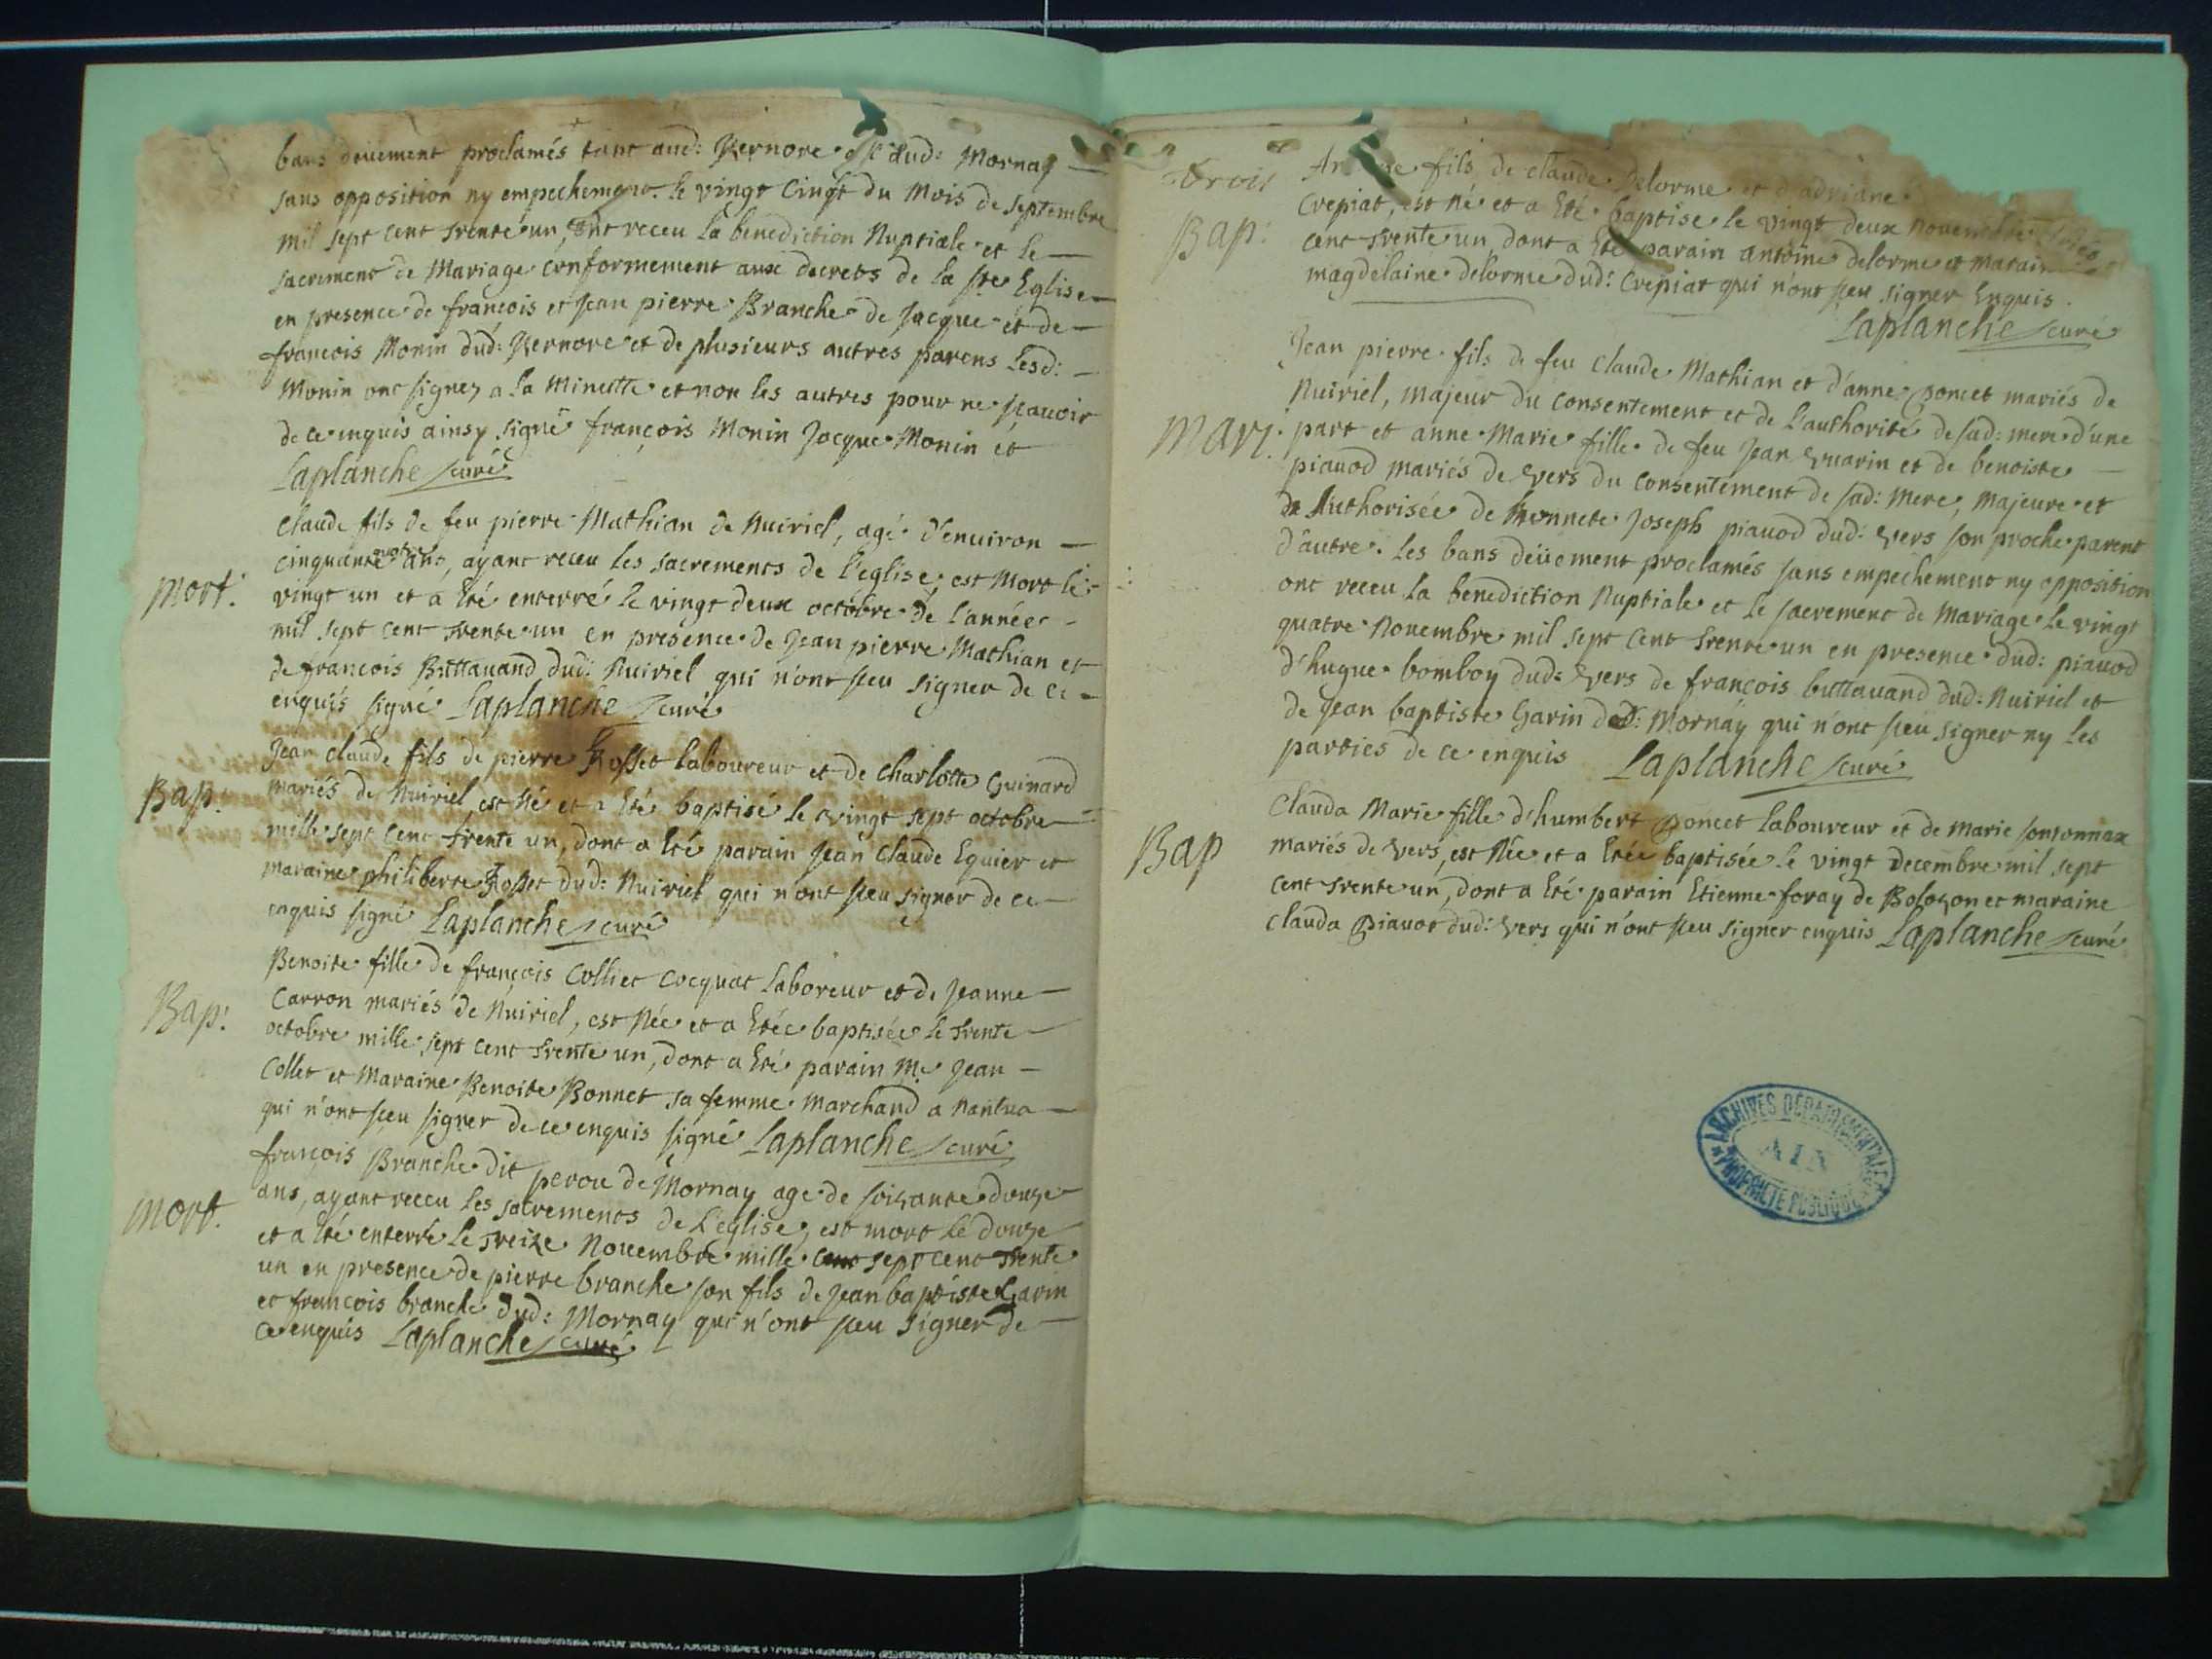 bans deuement proclamés tant aud: Vernore q̃ dud: Mornay
sans opposition ny empechement. le vingt cinqt du Mois de septembre
mil sept cent trente un, ont receu la benediction Nuptiale et le
sacrement de Mariage conformement aux decrets de la ste Eglise
en presence de francois et Jean pierre Branche de Jacque et de
francois Monin dud: Vernore et de plusieurs autres parens Lesd:
Monin ont signez a la Minutte et non les autres pour ne sçauoir
de ce enquis ainsy signé françois Monin Jacque Monin et
Laplanche curé
mort.
Claude fils de feu pierre Mathian de Nuiriel, agé d'enuiron
cinquante quatre ans, ayant receu les sacrements de l'eglise, est Mort le
vingt un et a Eté enterré le vingt deux octobre de l'année
mil sept cent trente un en presence de Jean pierre Mathian et
de francois Buttauand dud: Nuiriel qui n'ont sceu signer de ce
enquis signé Laplanche curé
Bap.
Jean claude fils de pierre Rosset laboureur et de Charlotte Guinard
mariés de Nuiriel est Né et a Eté baptisé le vingt sept octobre
mille sept cent trente un, dont a Eté parain Jean Claude Equier et
maraine philiberte Rosset dud: Nuiriel qui n'ont sceu signer de ce
enquis signé Laplanche curé
Bap:
Benoite fille de françois Colliet Cocquat Laboreur et de Jeanne
Carron mariés de Nuiriel, est Née et a Etée baptisée le trente
octobre mille sept cent trente un, dont a Eté parain Me Jean
Collet et Maraine Benoite Bonnet sa femme Marchand a Nantua
qui n'ont sceu signer de ce enquis signé Laplanche curé
mort.
françois Branche dit perou de Mornay age de soisante douze
ans, ayant receu les sacrements de L'eglise, est mort le douze
et a Eté enterré le treize Nouembre mille sept cent trente
un en presence de pierre branche son fils de Jean baptiste Garin
et francois branche dud: Mornay qui n'ont sceu signer de
ce enquis Laplanche curé
trois
Bap:
fils de claude Delorme et d'adriane
Crepiat, est Né et a Eté baptise le vingt deux nouembre
cent trente un, dont a Eté parain antoine delorme et marain
magdelaine delorme dud: Crepiat qui n'ont sceu signer Enquis.
Laplanche curé
Mari.
Jean pierre fils de feu Claude Mathian et d'anne poncet mariés de
Nuiriel, majeur du consentement et de l'authorité de sad: mere d'une
part et anne Marie fille de feu Jean Vuarin et de benoiste
piauod mariés de Vers du consentement de sad: Mere, Majeure et
Authorisée de honnete Joseph piauod dud: Vers son proche parent
d'autre. les bans deüement proclamés sans empechement ny opposition
ont receu la benediction Nuptiale et le sacrement de Mariage le vingt
quatre Nouembre mil sept cent trente un en presence dud: piauod
d'hugue bomboy dud: Vers de françois buttauand dud: Nuiriel et
de Jean baptiste Garin de Mornay qui n'ont sceu signer ny les
parties de ce enquis Laplanche curé
Bap
Clauda Marie fille d'humbert poncet laboureur et de Marie sonsonnax
mariés de Vers, est Née et a Etée baptisée le vingt decembre mil sept
cent trente un, dont a Eté parain Etienne foray de Bolozon et maraine
Clauda piauot dud: Vers qui n'ont sceu signer enquis Laplanche curé
ARCHIVES DÉPARTEMENTALES
AIN
PROPRIÉTÉ PUBLIQUE